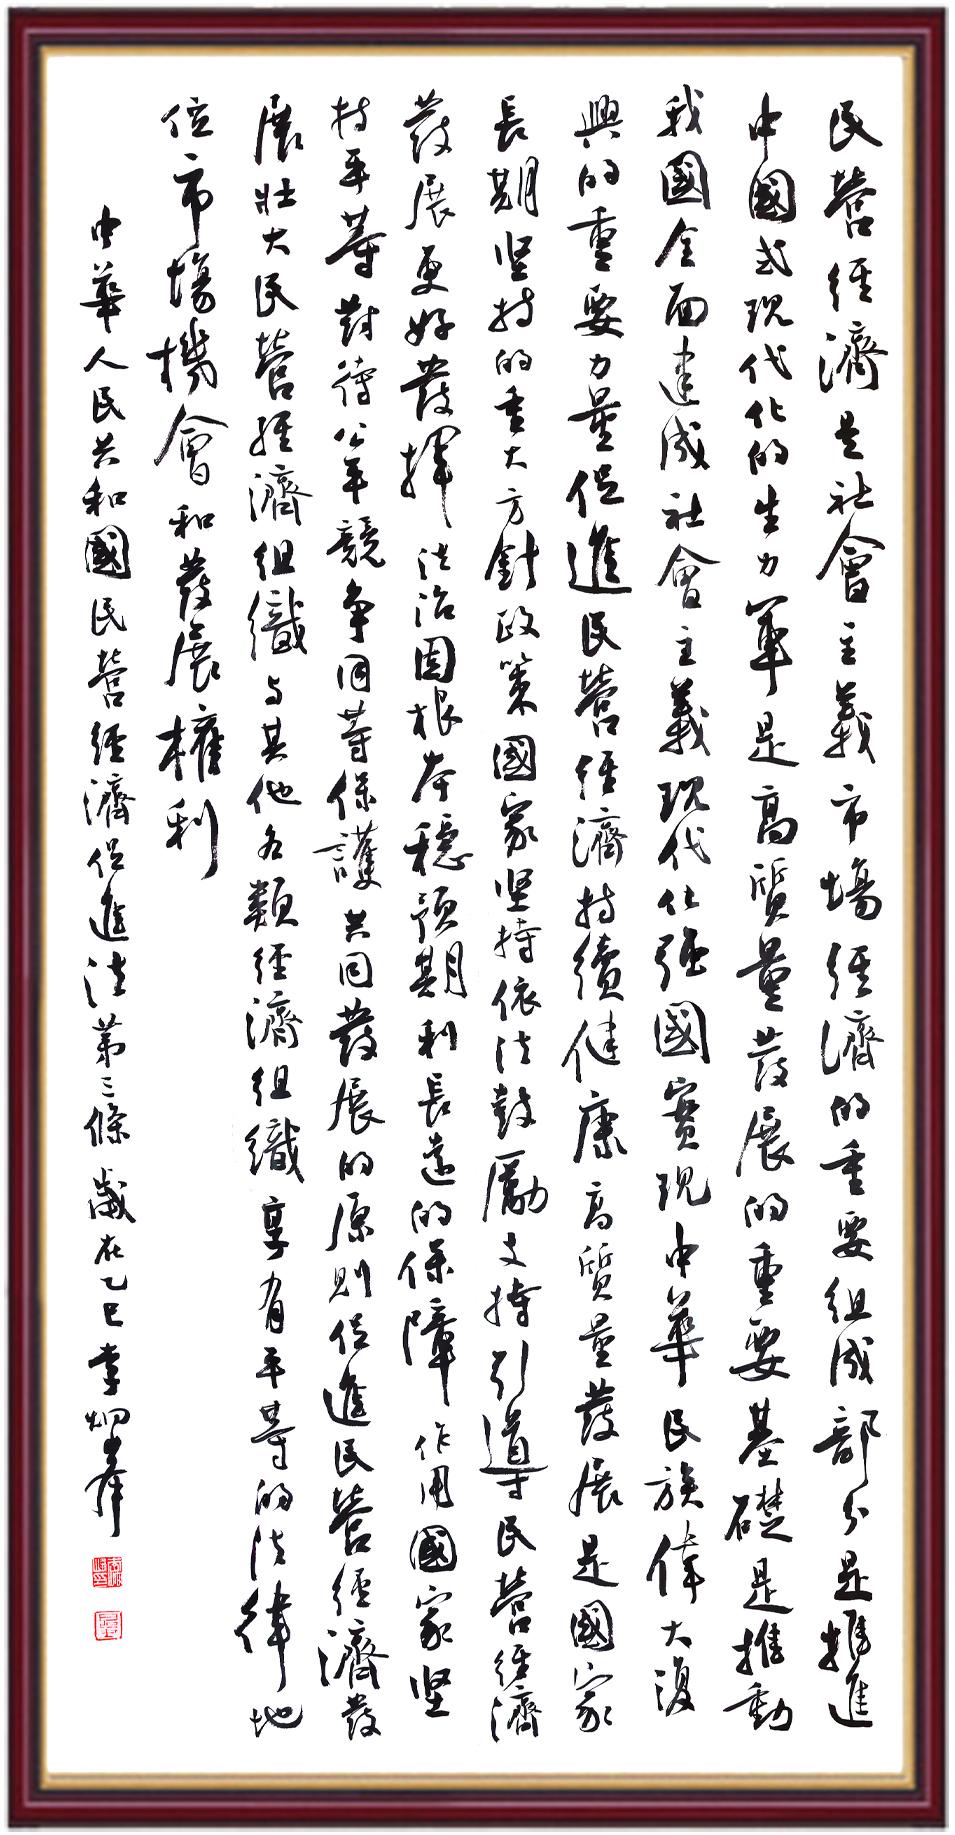 民營經濟是社會主義市場經濟的重要組成部分是推進
中國式現代化的生力軍是高質量發展的重要基礎是推動
我國全面建成社會主義現代化強國實現中華民族偉大復
興的重要力量促進民營經濟持續健康高質量發展是國家
長期坚持的重大方針政策國家坚持依法鼓勵支持引導民營經濟
發展更好發揮法治固根本穩預期利長遠的保障作用國家坚
持平等對待公平競争同等保護共同發展的原則促進民營經濟發
展壯大民營經濟組織与其他各類經濟組織享有平等的法律地
位市場機會和發展權利
中華人民共和國民營經濟促進法第三條歲在乙巳李炯峯